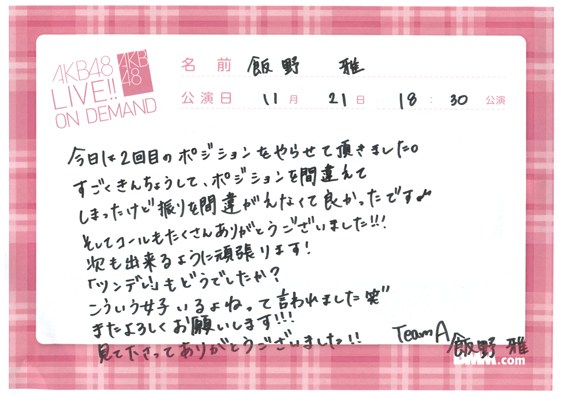 AKB48
LIVE!!
ON DEMAND
AKB
48
名前 飯野 雅
公演日 11月 21日 18:30 公演
今日は2回目のポジションをやらせて頂きました。
すごくきんちょうして、ポジションを間違えて
しまったけど振りを間違がえなくて良かったです♪
そしてコールもたくさんありがとうございました!!!
次も出来るように頑張ります!
「ツンデレ!」もどうでしたか?
こういう女子いるよねって言われました笑"
またよろしくお願いします!!!
見て下さってありがとうございました!!
TeamA 飯野 雅
.com